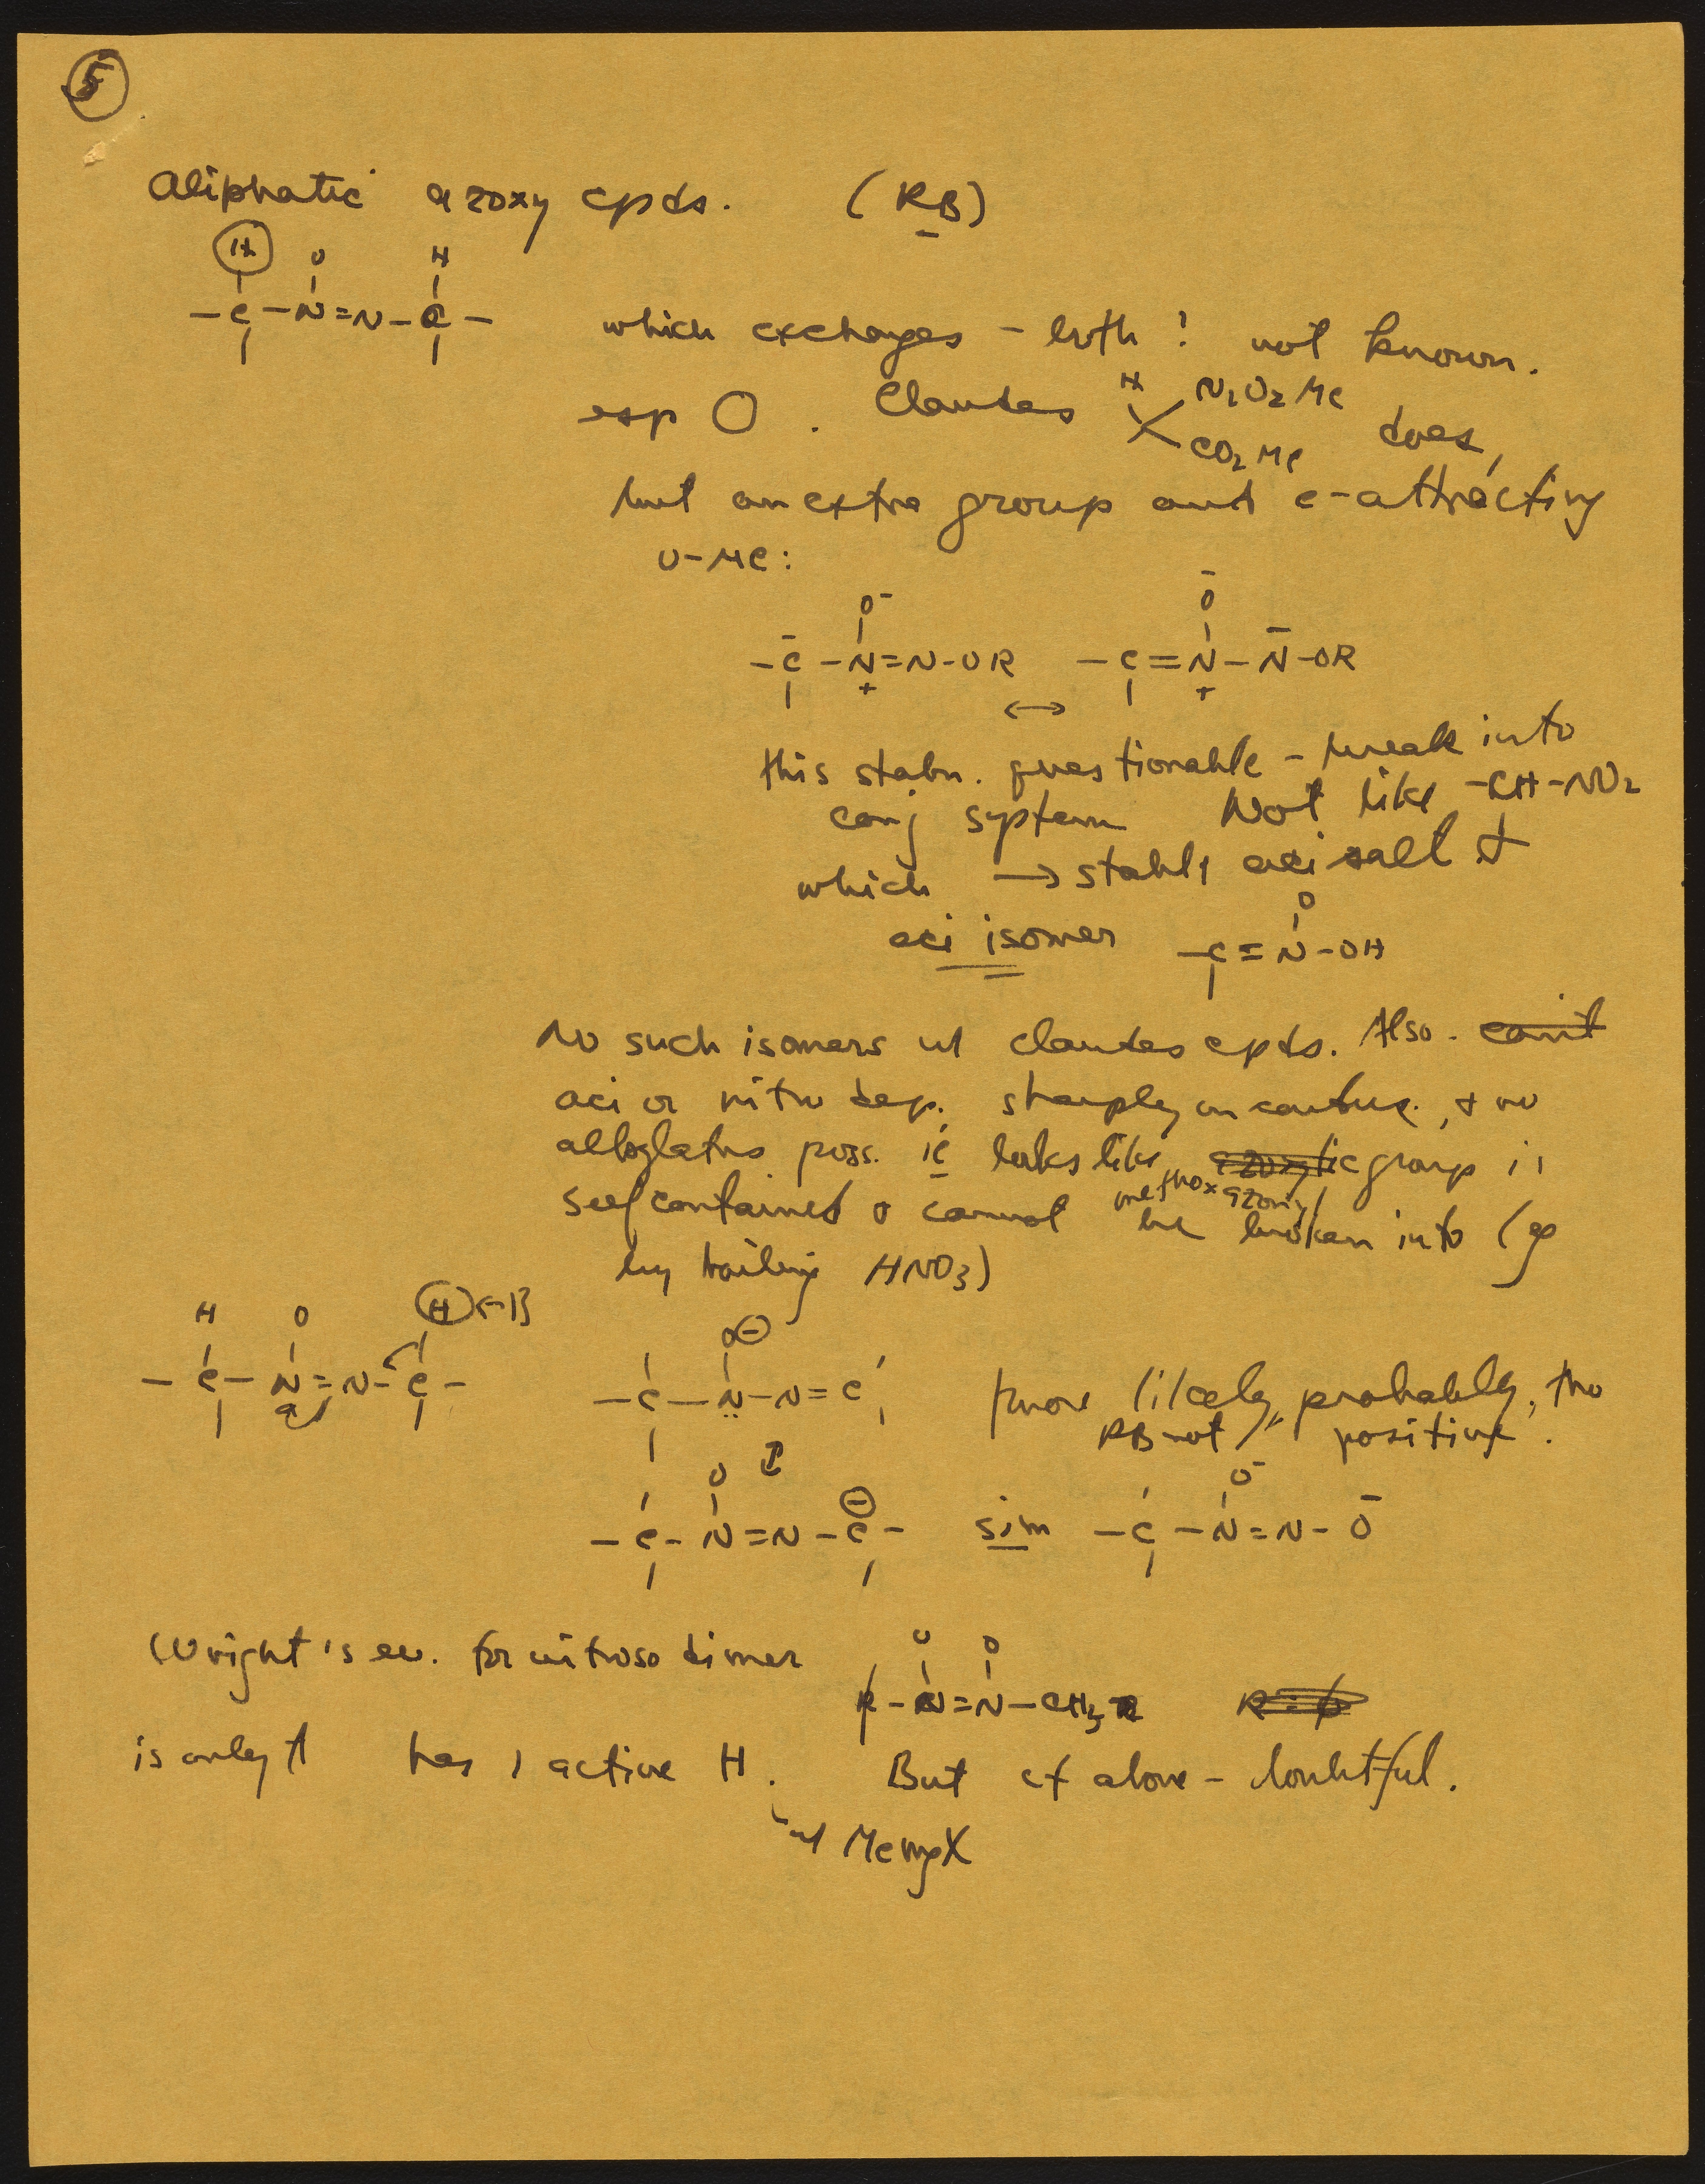 5
Aliphatic azoxy cpds. (RB)
H O H
-C-N=N-C-
which exchanges - both? not known.
esp O. Claudes H N2O2Me CO2Me does,
but an extra group and e-attracting
O-Me:
O- Ō
-C̄-N=N-OR ↔ -C=N-N̄-OR
+ +
this stabn. questionable - break into
conj system Not like -CH-NO2
which → stable aci salt &
aci isomer -C=N-OH
O
No such isomers w Claudes cpds. Also - can't
aci or nitro dep. sharply on conjug., + no
poss. ie looks like azoxy group is
methoxazonyl
self contained & cannot be broken into (eg
by boiling HNO3)
H O H ←B
-C-N=N-C-
O⊖
-C-N̤-N=C
more likely, probably, tho
RB not " positive.
↕
O ⊖ O-
-C-N=N-C- sim -C-N=N-Ō
Wright's ev. for nitroso dimer
O O
-N=N-CH3
is only it has 1 active H. But cf above - doubtful.
w MeMgX